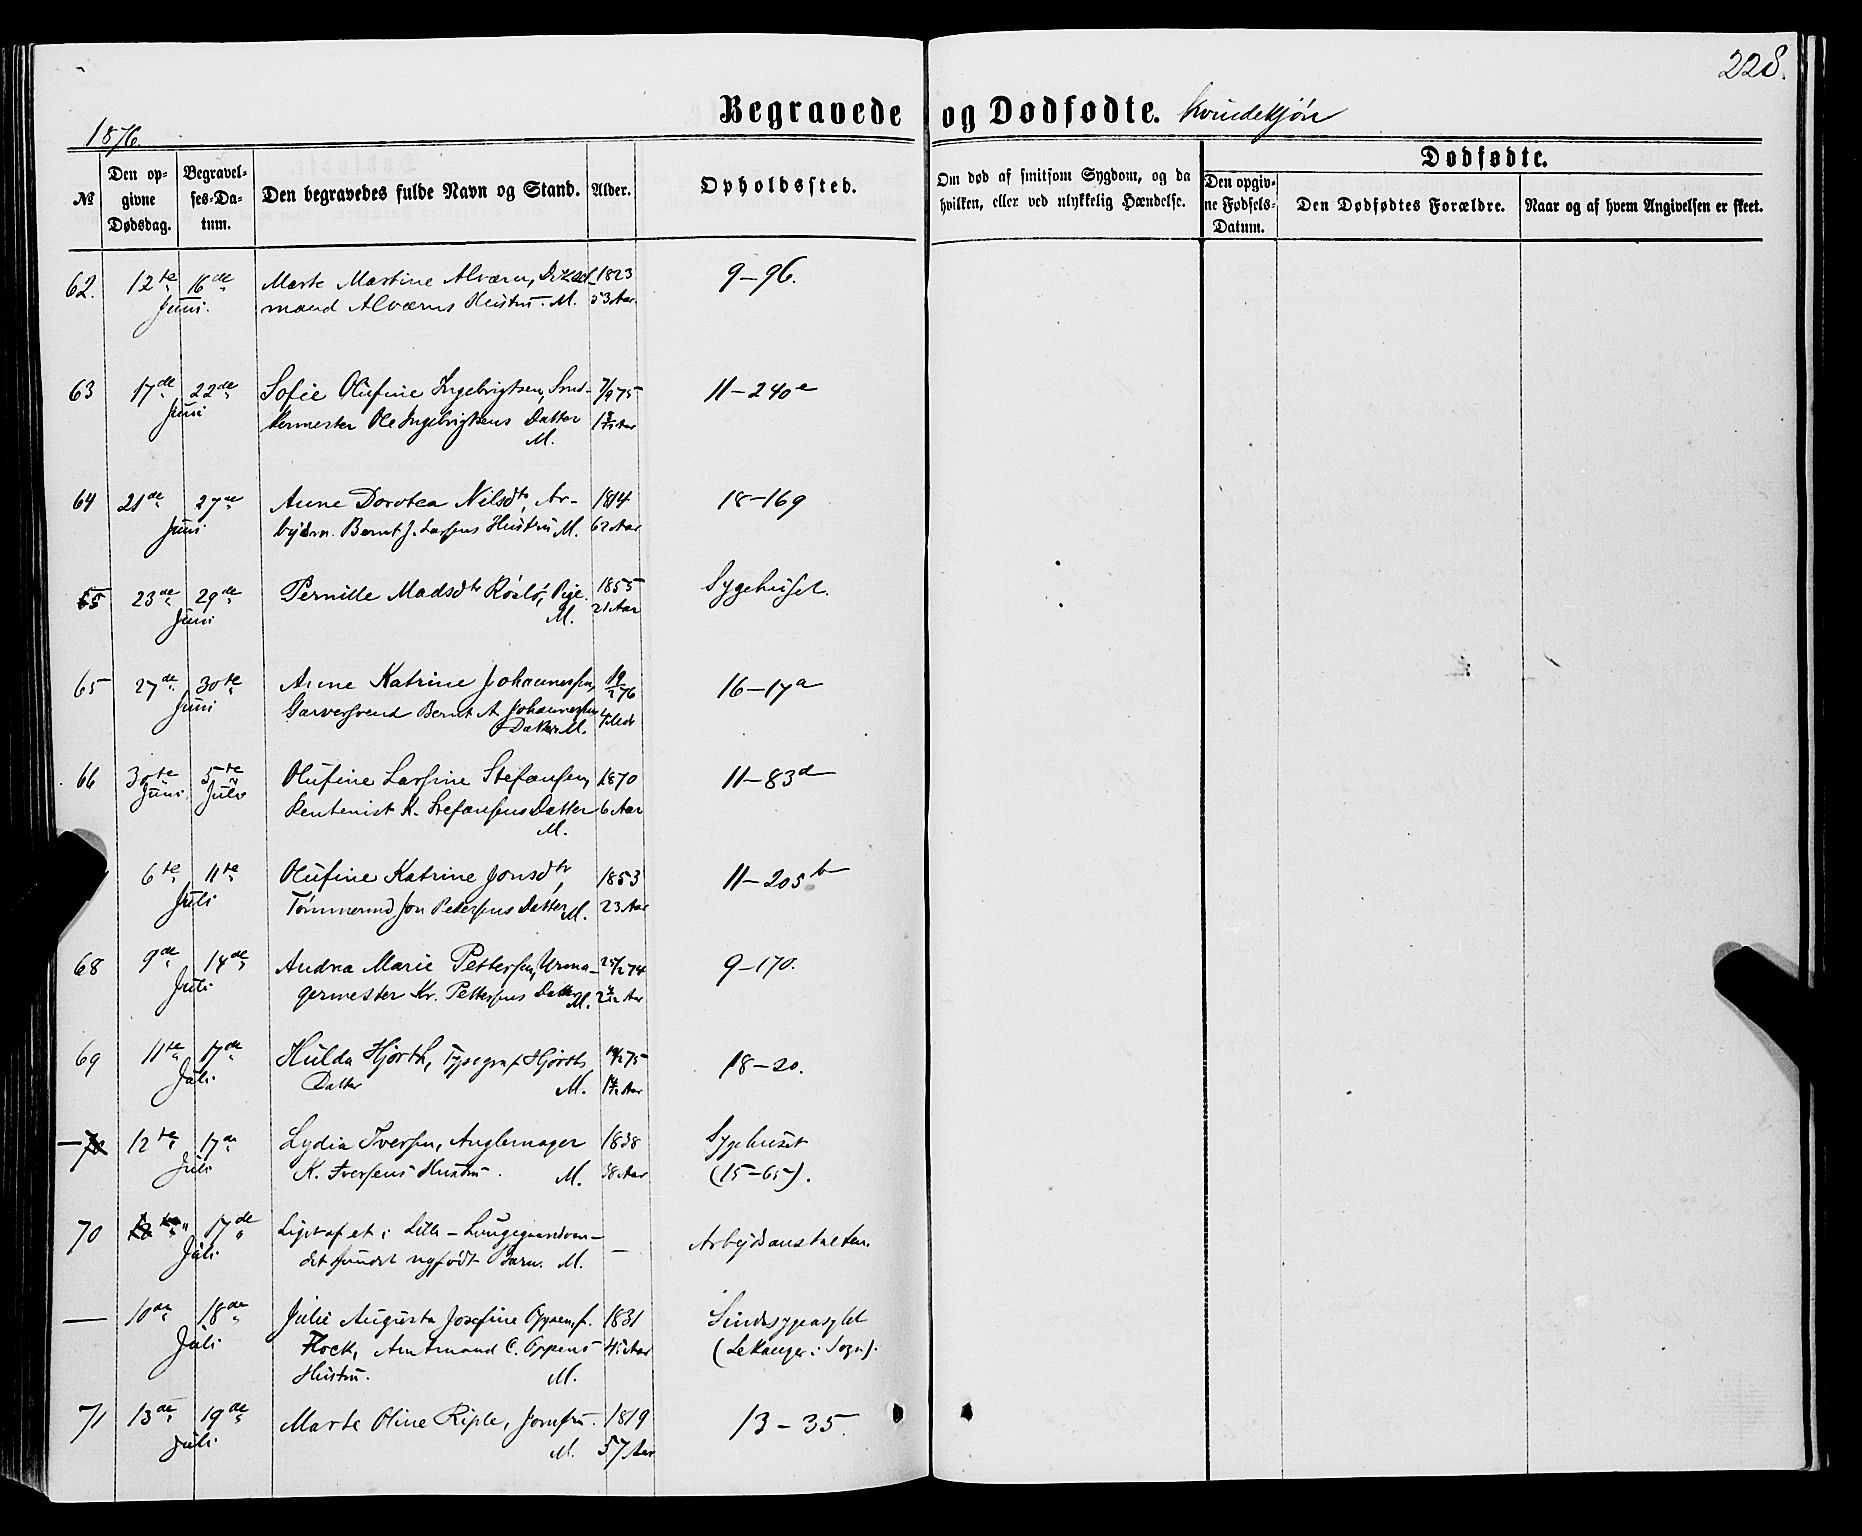 228.
Begravede og Dødfødte. Kvindekjøn
1876.
№
Den opgivne Dødsdag.
Begravelses-Datum.
Den begravedes fulde Navn og Stand.
Alder.
Opholdssted.
Om død af smitsom Sygdom, og da
hvilken, eller ved ulykkelig Hændelse.
Dødfødte.
Den opgivne Fødsels-Datum.
Den Dødfødtes Forældre.
Naar og af hvem Angivelsen er skeet.
62. 12te 16de Marte Martine Alværn, 1823 9-96.
Juni. mand Alværns Hustru. M. 53 Aar.
63 17de 22de Sofie Olufine Ingebrigtsen, Sned- 7/9 75 11-240e
Juni kermester Ole Ingebrigtsens Datter
M.
64 21de 27de Anne Dorotea Nilsdtr, Ar- 1814 18-169
Juni bejdsm. Bernt J. Larsens Hustru M. 62 Aar
65 23de 29de Pernille Madsdtr Pige. 1855 Sygehuset.
Juni M. 21 Aar
65 27de 30te Anne Katrine Johannessen, 16-17a
Juni Garversvend Bernt A. Johannessens
Datter. M.
66 30te 5te Olufine Larsine Stefansen, 1870 11-83d
Juni. Juli Rentenist K. Stefansens Datter 6 Aar
M.
6te 11te Olufine Katrine Jonsdtr, 1853 11-205b
Juli Tømmermd Jon Petersens Datter M. 23 Aar
68 9de 14de Andrea Marie Pettersen, Urma- 9-170.
Juli germester Kr. Pettersens Datter M.
69 11te 17de Hulda Hjorth, Typograf Hjorths 18-20.
Juli Datter M.
— 70 12te 17de Lydia Iversen, Anglemager 1838 Sygehuset
Juli K. Iversens Hustru. M. 38 Aar (15-65).
70 17de Liget af et i Lille-Lungegaardsvan-
Juli det fundet nyfødt Barn. M. — Arbejdsanstalten.
— 10de 18de Julie Augusta Josefine Oppen, f. 1831 Sindssygeasylet
Juli Flock, Amtmand C. Oppens 45 Aar (Lekanger i Sogn).
Hustru. M.
71 13de 19de Marte Oline Riple, Jomfru. 1819 13-35.
Juli M. 57 Aar